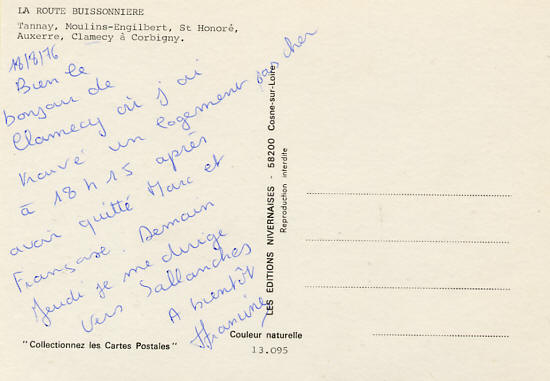 LA ROUTE BUISSONNIERE
Tannay, Moulins-Engilbert, St Honoré,
Auxerre, Clamecy à Corbigny.
18/8/76
Bien le
bonjour de
Clamecy où j'ai
trouvé un logement pas cher
à 18 h 15 après
avoir quitté Marc et
Françoise. Demain
Jeudi je me dirige
vers Sallanches
A bientôt
Francine
LES EDITIONS NIVERNAISES - 58200 Cosne-sur-Loire
Reproduction interdite
Couleur naturelle
"Collectionnez les Cartes Postales"
13.095